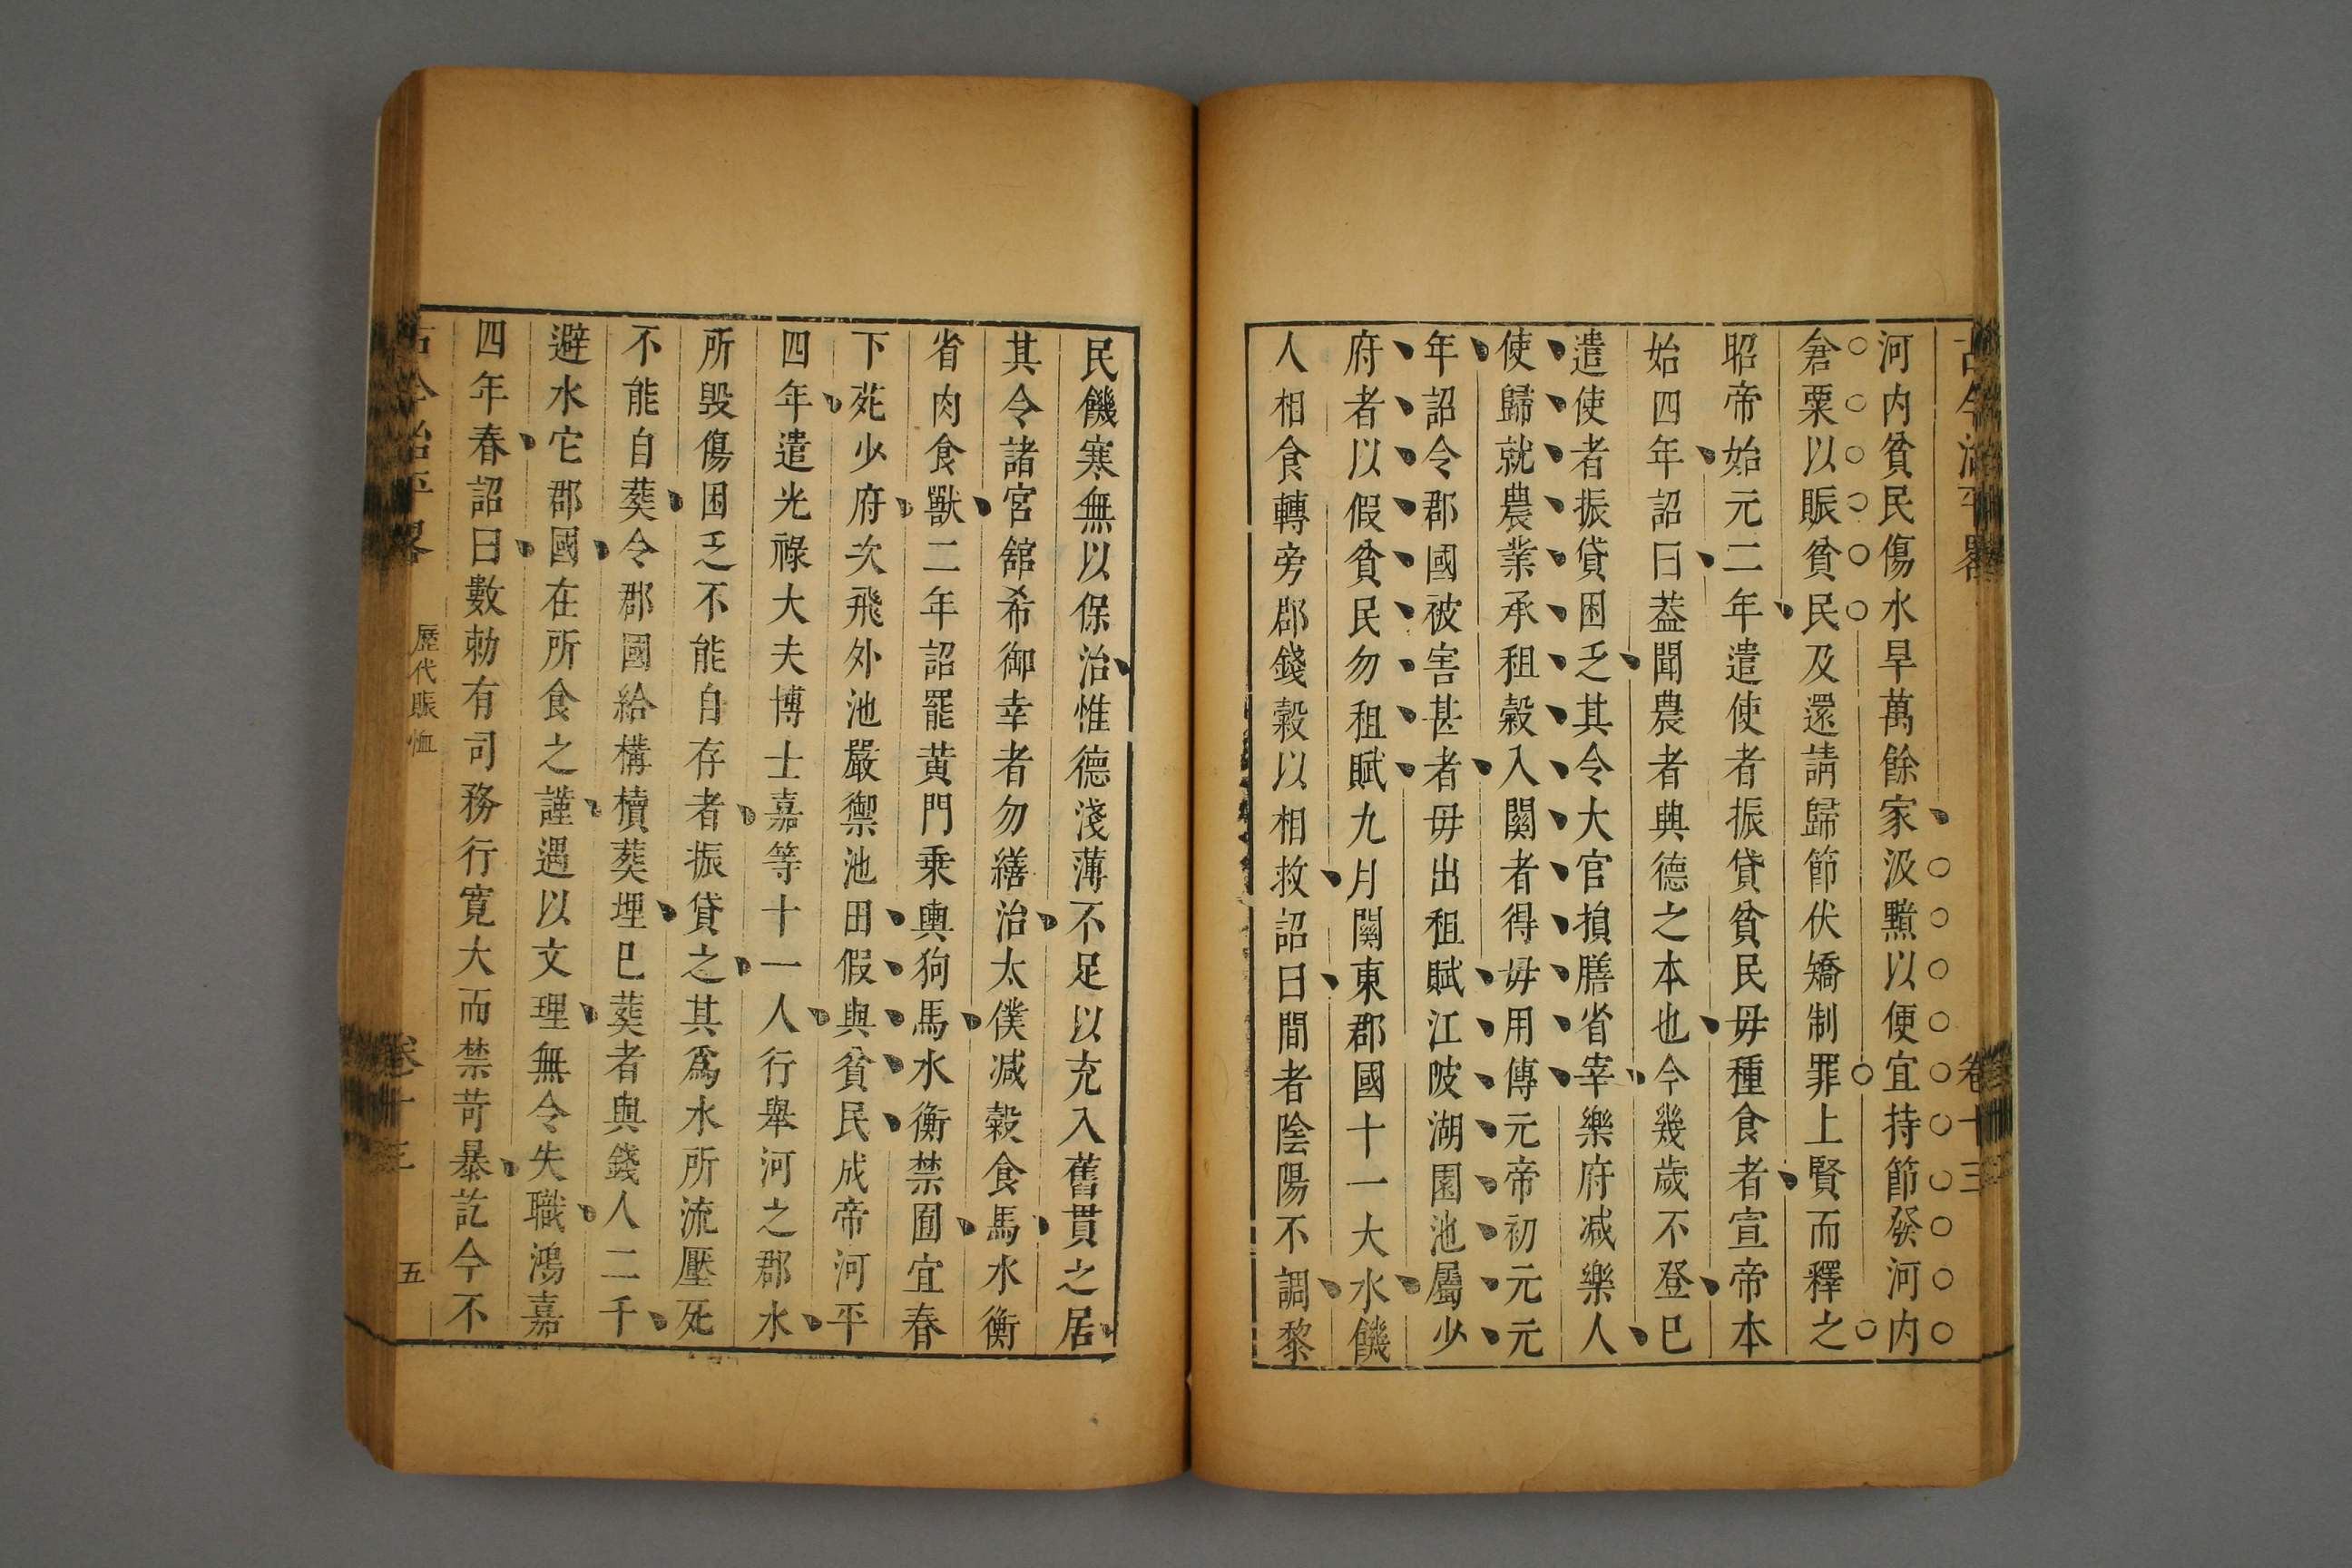 古今治平畧
卷十三
河内貧民傷水旱萬餘家汲黯以便宜持節發河内
倉粟以賑貧民及還請歸節伏矯制罪上賢而釋之
昭帝始元二年遣使者振貸貧民毋種食者宣帝本
始四年詔曰葢聞農者興德之本也今幾歲不登巳
遣使者振貸困乏其令大官損膳省宰樂府减樂人
使歸就農業承租穀入關者得毋用傳元帝初元元
年詔令郡國被害甚者毋出租賦江陂湖園池屬少
府者以假貧民勿租賦九月關東郡國十一大水饑
人相食轉旁郡錢穀以相救詔曰間者陰陽不調黎
民饑寒無以保治惟德淺薄不足以充入舊貫之居
其令諸宮舘希御幸者勿繕治太僕减穀食馬水衡
省肉食獸二年詔罷黄門乗輿狗馬水衡禁囿宜春
下苑少府次飛外池嚴禦池田假與貧民成帝河平
四年遣光祿大夫博士嘉等十一人行舉河之郡水
所毁傷困乏不能自存者振貸之其爲水所流壓死
不能自葬令郡國給槥櫝葬埋巳葬者與錢人二千
避水它郡國在所食之謹遇以文理無令失職鴻嘉
四年春詔曰數勑有司務行寛大而禁苛暴訖今不
古今治平畧
歷代賑恤
卷十三
五